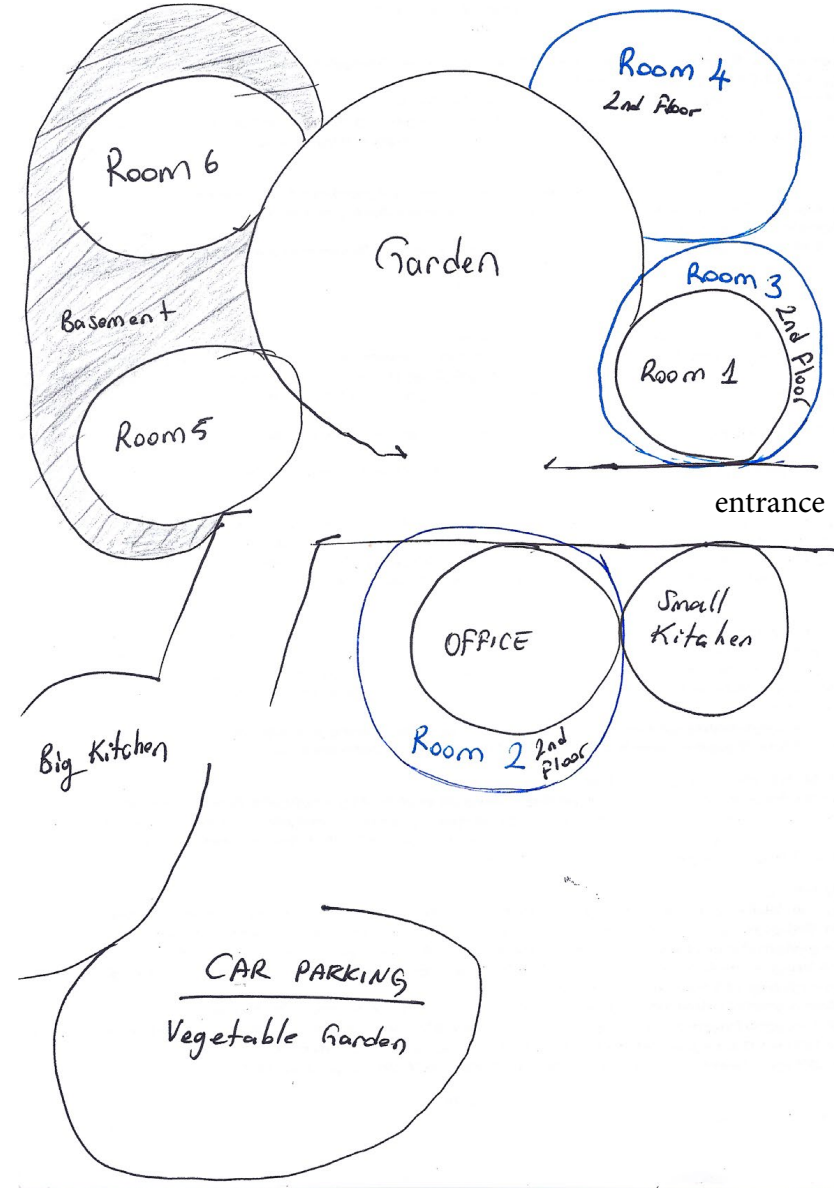 Room 4
2nd Floor
Room 6
Garden
Room 3
2nd Floor
Basement
Room 1
Room 5
entrance
OFFICE
Small
Kitchen
Room 2
2nd
Floor
Big Kitchen
CAR PARKING
Vegetable Garden